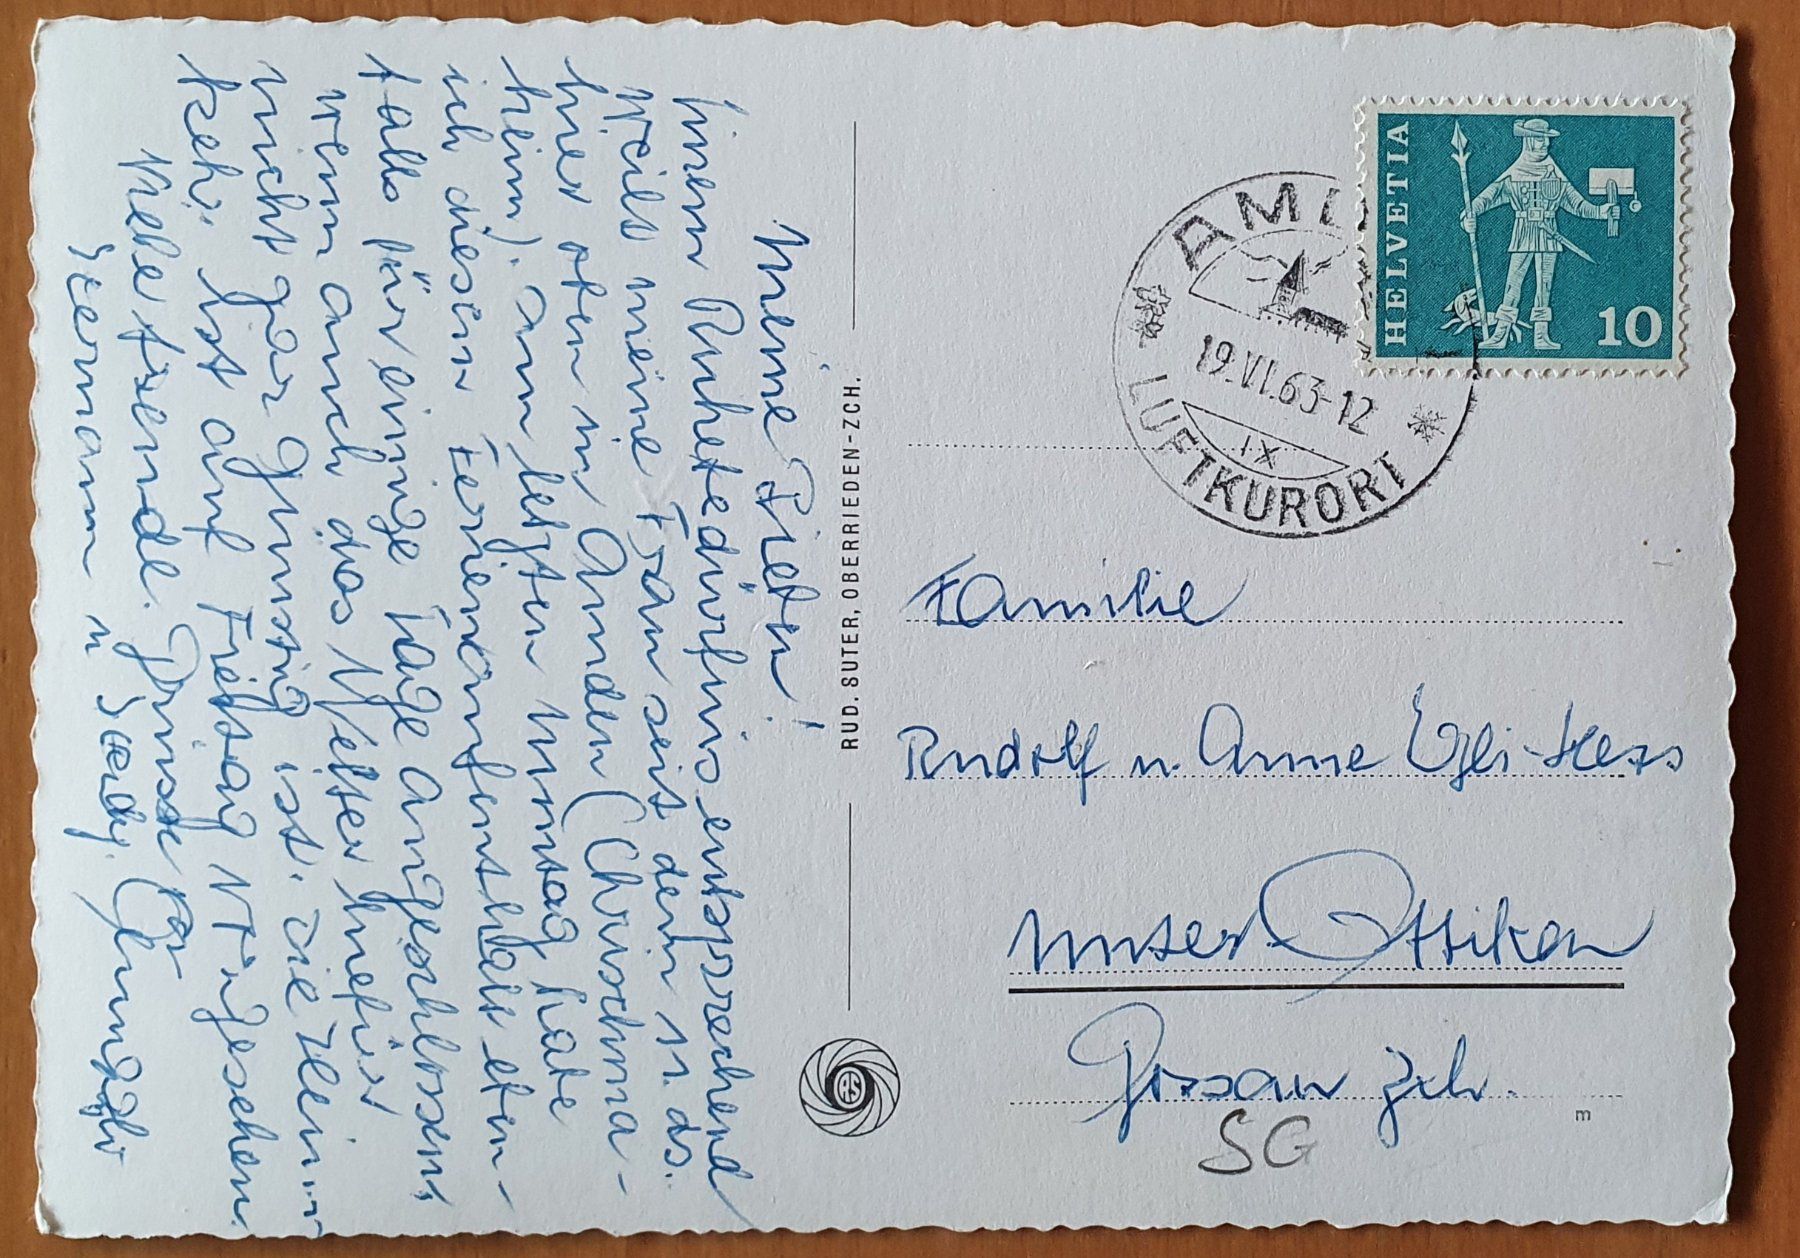 Meine Lieben!
Einem Ruhebedürfnis entsprechend
weilt meine Frau seit dem 11. ds.
hier oben in Amden (Chrischona-
heim). Am letzten Sonntag habe
ich diesem Ferienaufenthalt eben-
falls für einige Tage angeschlossen,
wenn auch das Wetter hiefür
nicht gar günstig ist.
ist auf Freitag vorgesehen.
Liebe Grüsse von
Hermann u.
HELVETIA
10
AMD
19.VI.63-12
IX
LUFTKURORT
RUD. SUTER, OBERRIEDEN-ZCH.
Familie
Rudolf u. Anne Egli-Hess
Unter-Ottikon
Gossau Zch.
SG
m